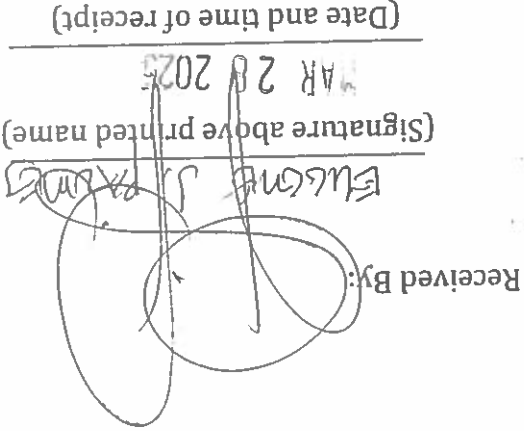 Received By:
EUGENE
(Signature above printed name)
MAR 28
(Date and time of receipt)